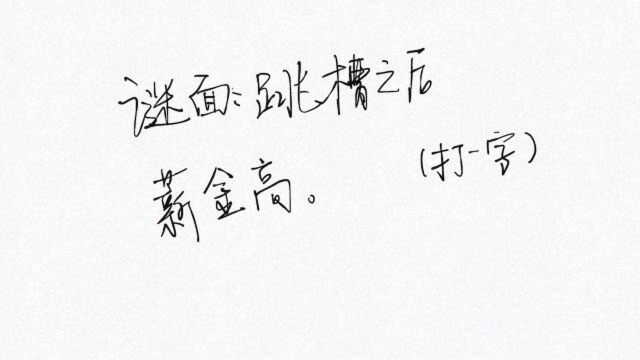 谜面：跳槽之后
薪金高。
（打一字）